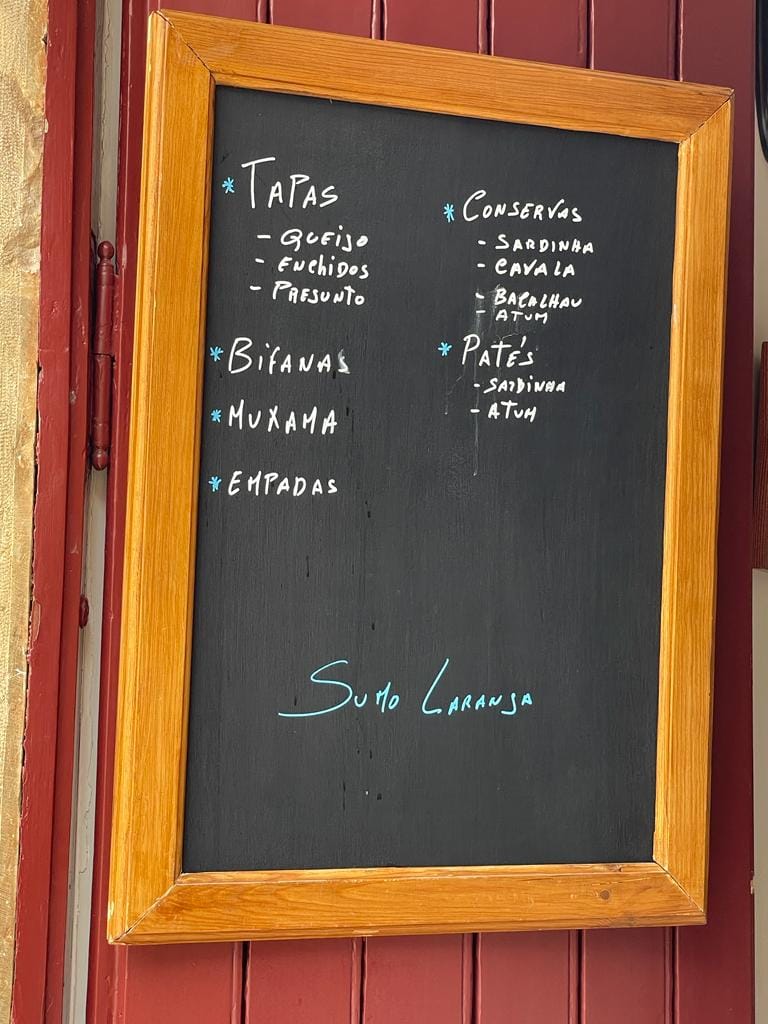 * TAPAS
- QUEIJO
- ENCHIDOS
- PRESUNTO
* BIFANAS
* MUXAMA
* EMPADAS
* CONSERVAS
- SARDINHA
- CAVALA
- BACALHAU
- ATUM
* PATÉS
- SARDINHA
- ATUM
SUMO LARANJA